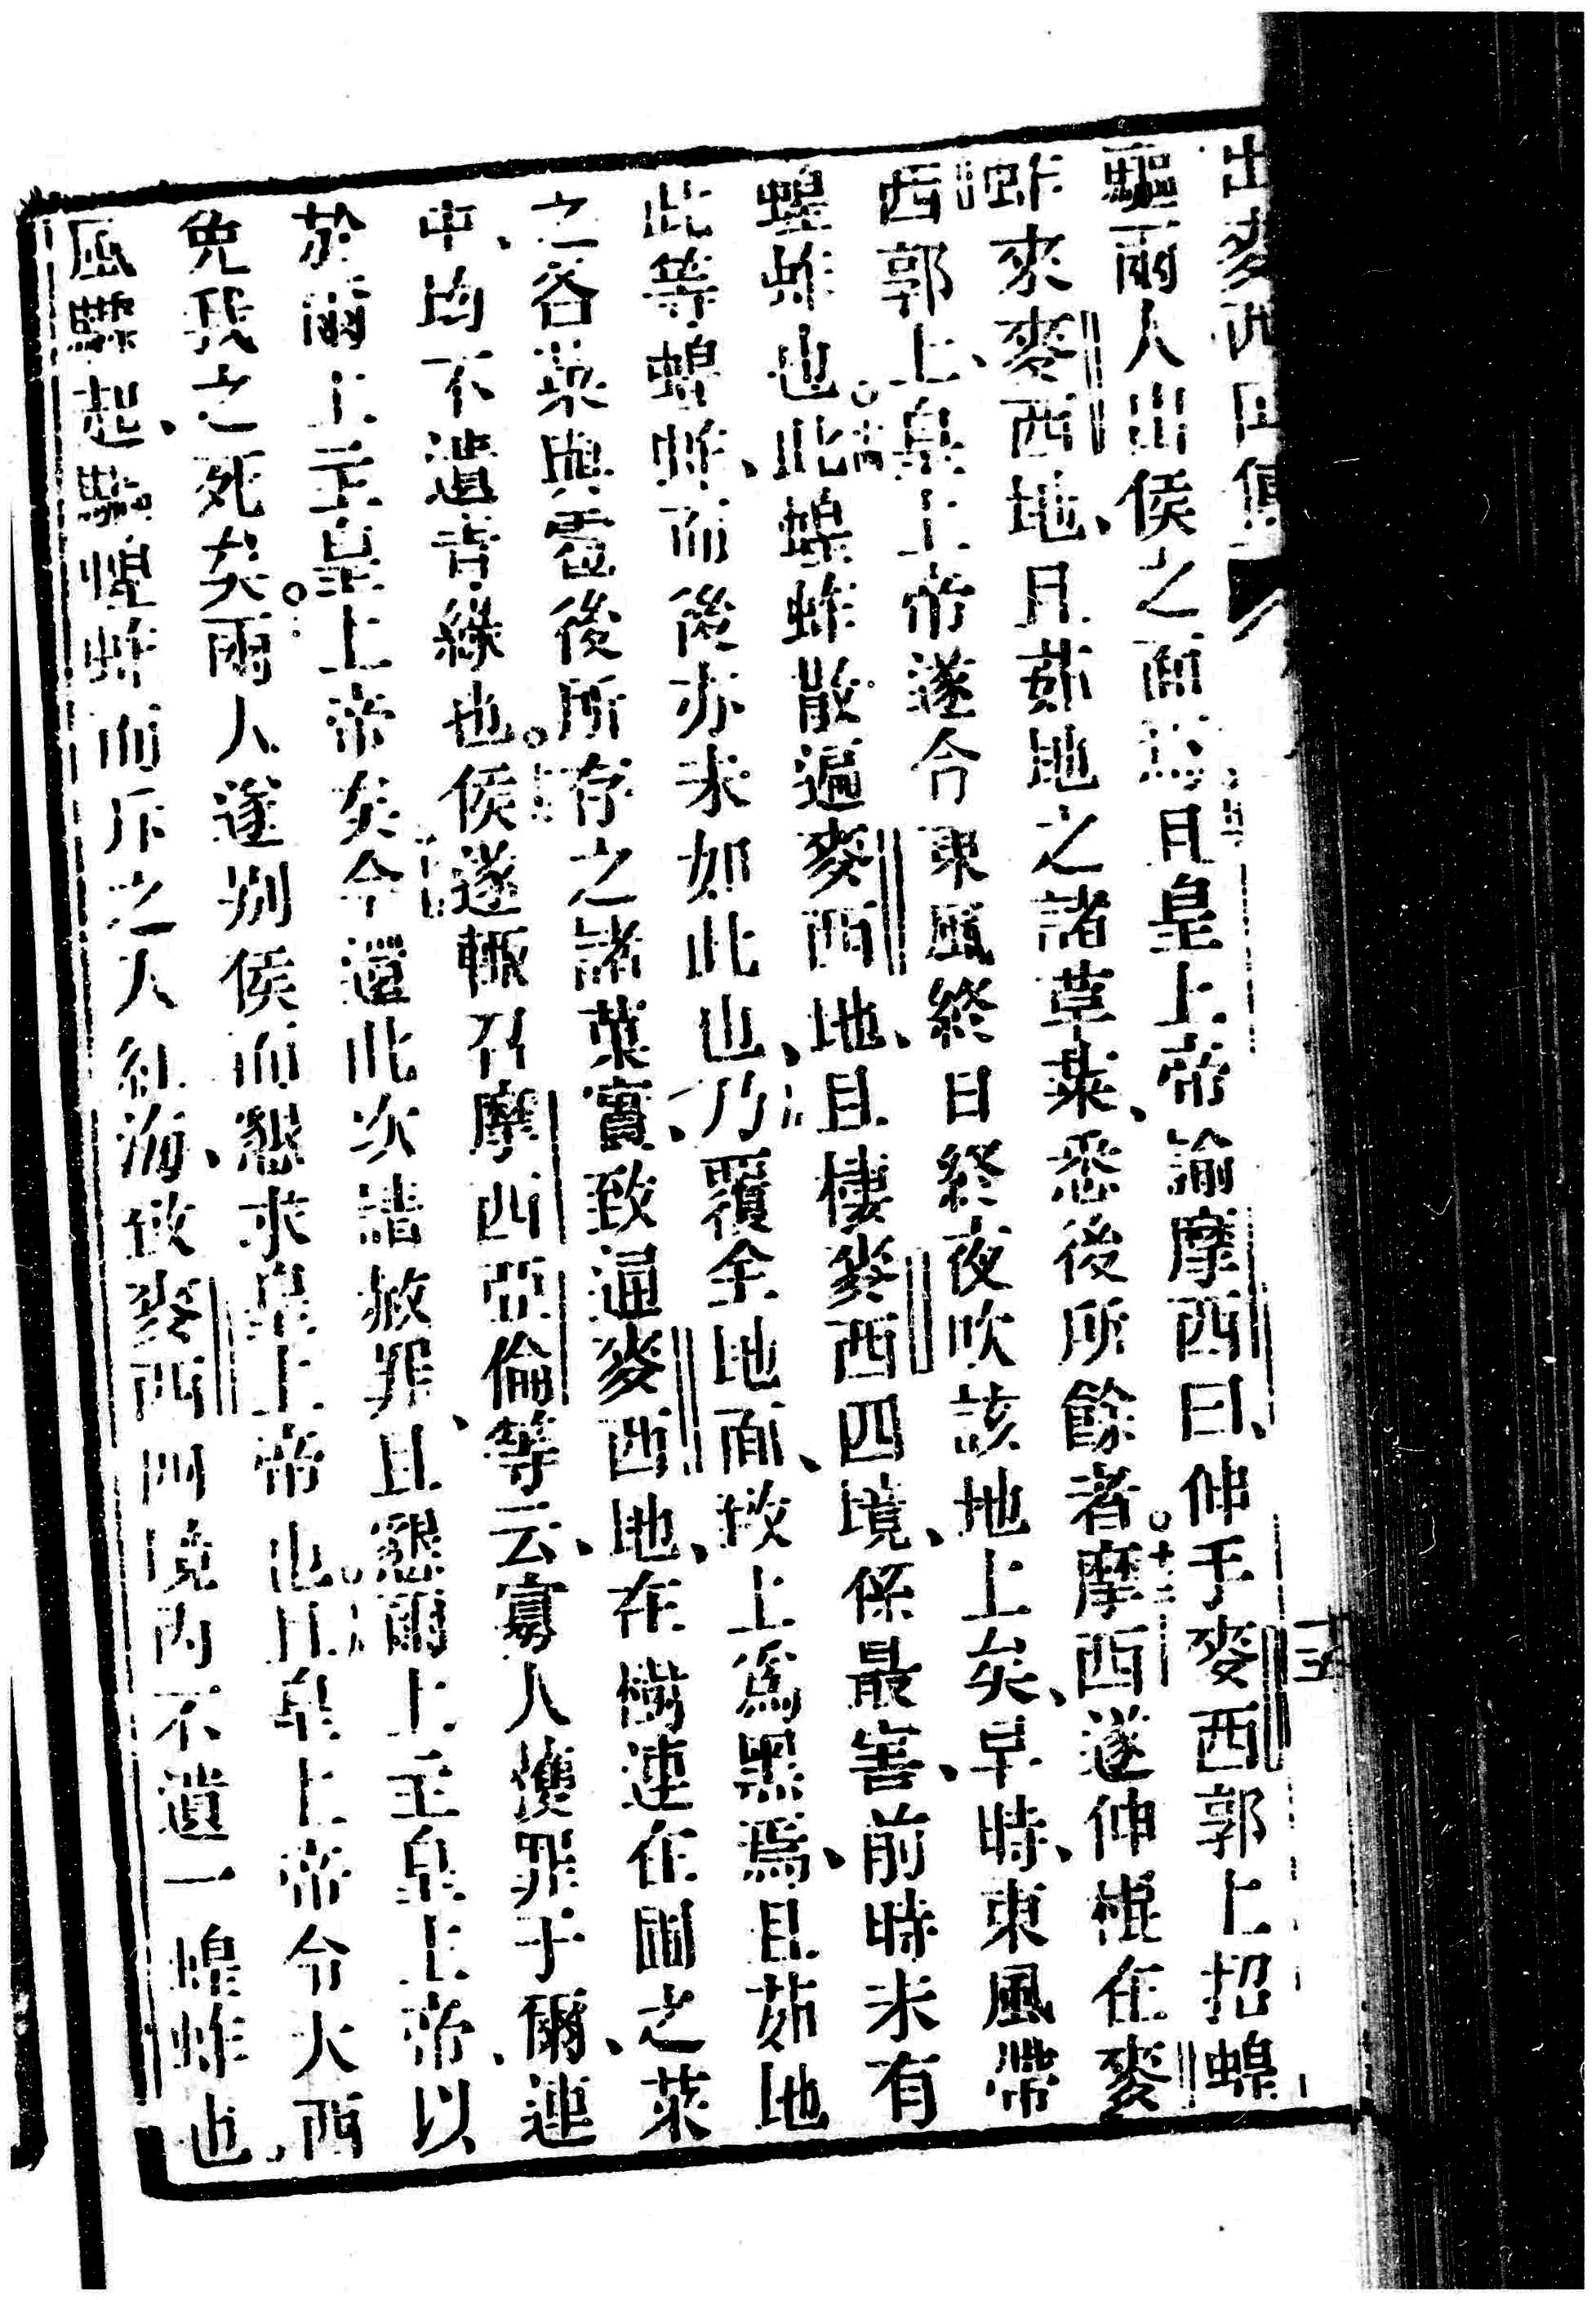 出麥西囙傳
驅兩人出侯之面焉、且皇上帝諭摩西曰、伸手麥西郭上招蝗
蚱來麥西地、且茹地之諸草菜、悉後所餘者。十三摩西遂伸棍在麥
西郭上、皇上帝遂令東風終日終夜吹該地上矣、早時、東風帶
蝗蚱也。此蝗蚱散遍麥西地、且棲麥西四境、係最害、前時未有
此等蝗蚱、而後亦未如此也、乃覆全地面、致上爲黑焉、且茹地
之各菜與雹後所存之諸菓實、致逼麥西地、在樹連在園之菜
中、均不遺青綠也。侯遂輒召摩西亞倫等云、寡人獲罪于爾、連
於爾上主皇上帝矣今還此次請赦罪、且懇爾上主皇上帝、以
免我之死矣。兩人遂別侯而懇求皇上帝也。且皇上帝令大西
風驟起、驅蝗蚱而斥之入紅海、致麥西四境內不遺一蝗蚱也、